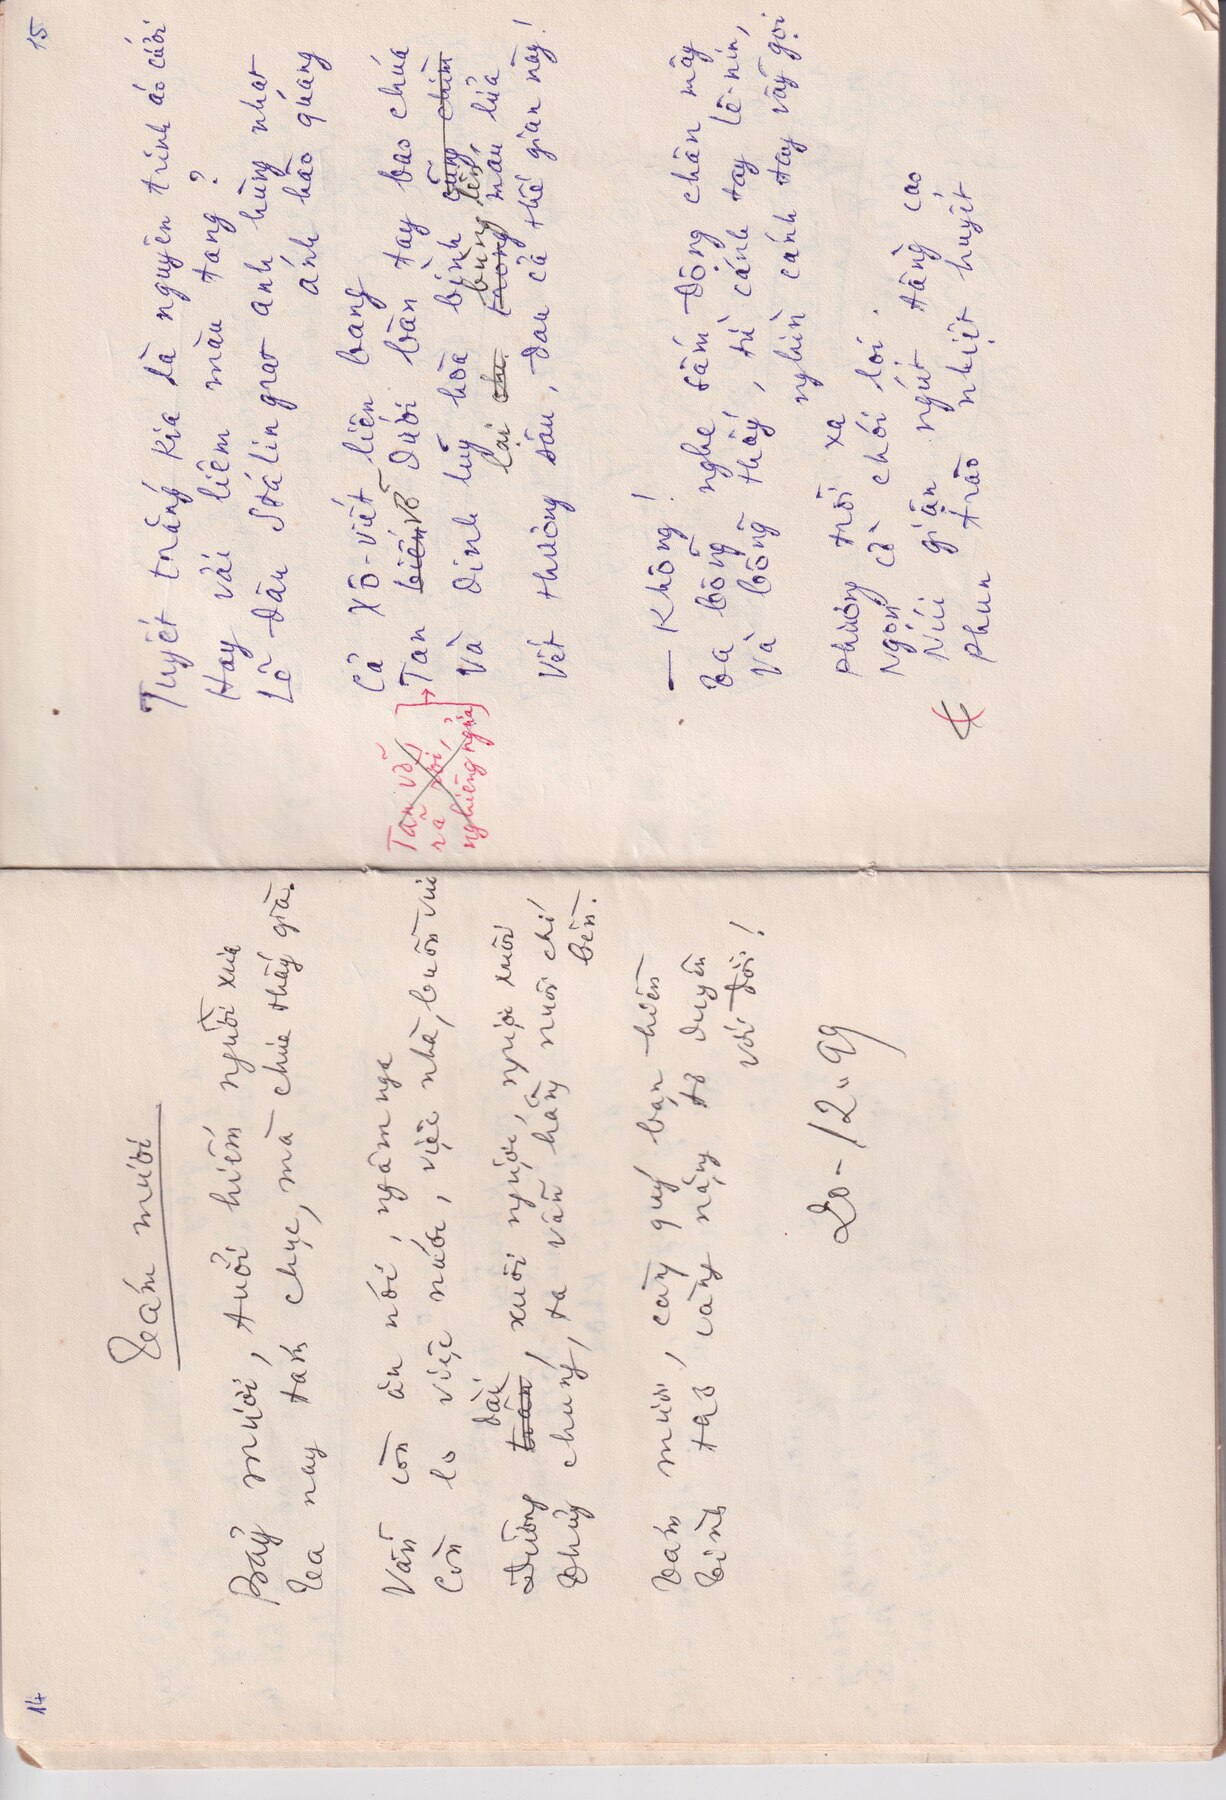 14
Tám mươi
Bảy mươi, tuổi hiếm người xưa
Ta nay tám chục, mà chưa thấy già.
Vẫn còn ăn nói, ngâm nga
Còn lo việc nước, việc nhà, buồn vui
Đường dài trần, xuôi ngược, ngược xuôi
Thủy chung, ta vẫn hằng nuôi chí
bền.
Tám mươi, càng quý bạn hiền
Tình tao càng nặng tơ duyên
với đời!
20-12-99
15
Tuyết trắng kia là nguyên trinh áo cưới
Hay vải liệm màu tang?
Lẽ đâu Stalingrat anh hùng nhạt
ánh hào quang
Cả Xô-viết liên bang
Tan biến vỡ dưới bàn tay bao chúa
Và dinh luỹ hoà bình cũng chìm
bùng lên,
lại trong máu lửa
Vết thương sâu, đau cả thế gian này!
Tan vỡ
rã rời,
nghiêng ngửa
— Không!
Ta bỗng nghe sấm động chân mây
Và bỗng thấy, từ cánh tay Lê-nin,
nghìn cánh tay vẫy gọi
Phương trời xa
Ngọn cờ chói lọi.
Núi giận ngút tầng cao
Phun trào nhiệt huyết